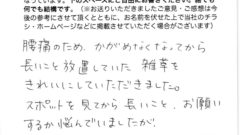 何でも結構です。(※お送りいただきましたご意見・ご感想は今
後の参考にさせて頂くとともに、お名前を伏せた上で当社のチラ
シ・ホームページなどに掲載させていただく場合がございます)
腰痛のため、かがめなくなってから
長いこと放置していた 雑草を
きれいにしていただきました。
スポットを見てから 長いこと、お願い
するか悩んでいましたが、